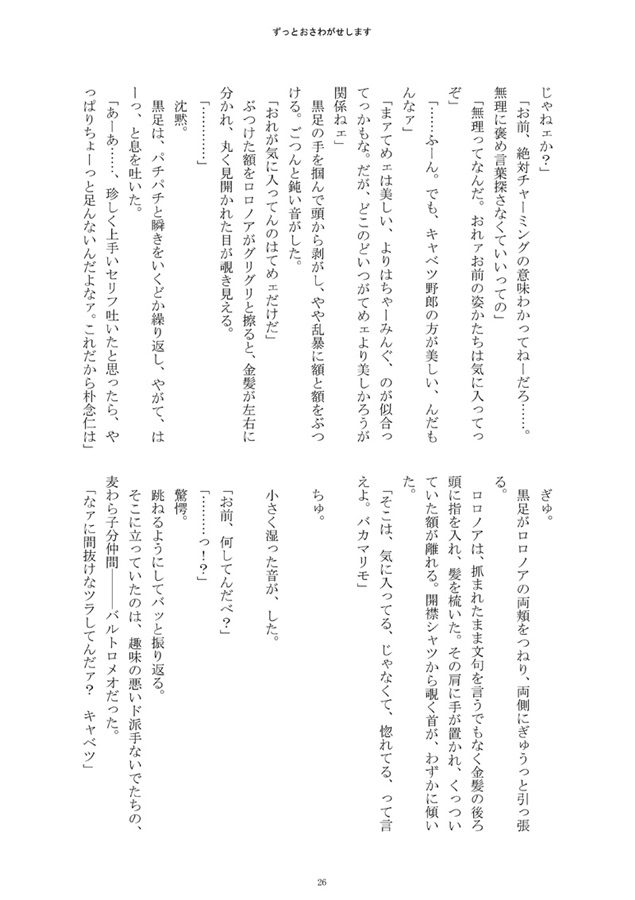 ずっとおさわがせします
じゃねェか？」
「お前、絶対チャーミングの意味わかってねーだろ……。
無理に褒め言葉探さなくていいっての」
「無理ってなんだ。おれァお前の姿かたちは気に入ってっ
ぞ」
「……ふーん。でも、キャベツ野郎の方が美しい、んだも
んなァ」
「まァてめェは美しい、よりはちゃーみんぐ、のが似合っ
てっかもな。だが、どこのどいつがてめェより美しかろうが
関係ねェ」
黒足の手を掴んで頭から剥がし、やや乱暴に額と額をぶつ
ける。ごつんと鈍い音がした。
「おれが気に入ってんのはてめェだけだ」
ぶつけた額をロロノアがグリグリと擦ると、金髪が左右に
分かれ、丸く見開かれた目が覗き見える。
「…………」
沈黙。
黒足は、パチパチと瞬きをいくどか繰り返し、やがて、は
ーっ、と息を吐いた。
「あーあ……、珍しく上手いセリフ吐いたと思ったら、や
っぱりちょーっと足んないんだよなァ。これだから朴念仁は」
ぎゅ。
黒足がロロノアの両頬をつねり、両側にぎゅうっと引っ張
る。
ロロノアは、抓まれたまま文句を言うでもなく金髪の後ろ
頭に指を入れ、髪を梳いた。その肩に手が置かれ、くっつい
ていた額が離れる。開襟シャツから覗く首が、わずかに傾い
た。
「そこは、気に入ってる、じゃなくて、惚れてる、って言
えよ。バカマリモ」
ちゅ。
小さく湿った音が、した。
「お前、何してんだべ？」
「………っ！？」
驚愕。
跳ねるようにしてバッと振り返る。
そこに立っていたのは、趣味の悪いド派手ないでたちの、
麦わら子分仲間――バルトロメオだった。
「なァに間抜けなツラしてんだァ？　キャベツ」
26